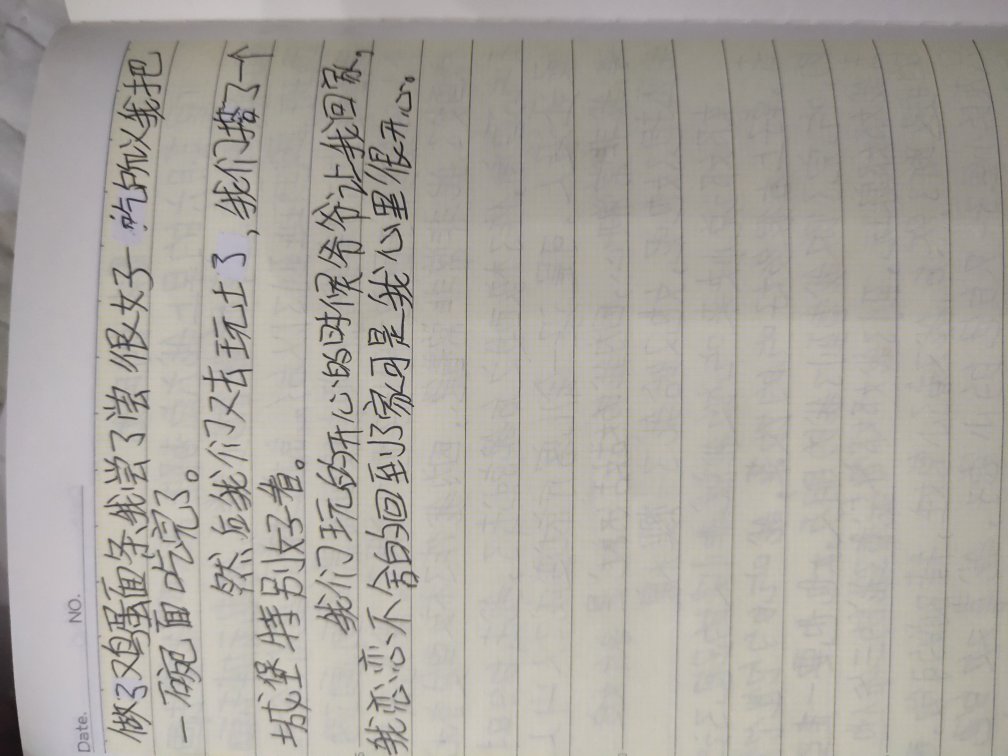 Date.
NO.
做了鸡蛋面条我尝了尝很好吃的所以我把
一碗面吃完了。
然后我们又去玩土了,我们搭了一个
城堡特别好看。
我们玩的开心的时候爷爷让我回家,
我恋恋不舍的回到了家可是我心里很开心。